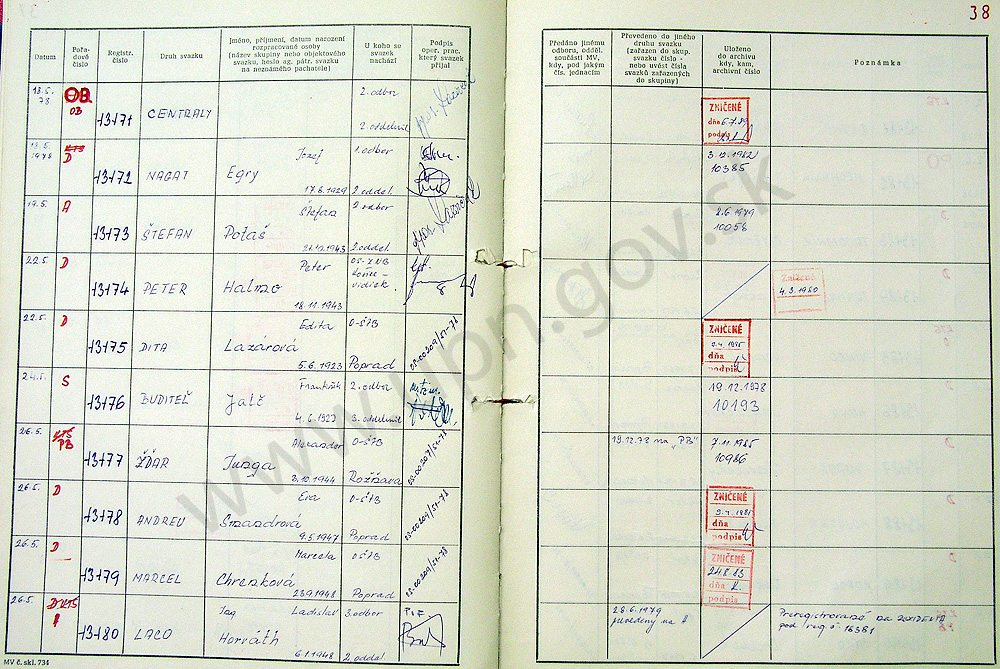 38
Datum
Pořa-
dové
číslo
Registr.
číslo
Druh svazku
Jméno, příjmení, datum narození
rozpracované osoby
(název skupiny nebo objektového
svazku, heslo ag. pátr. svazku
na neznámého pachatele)
U koho se
svazek
nachází
Podpis
oper. prac.
který svazek
přijal
Předáno jinému
odboru, odděl.
součásti MV,
kdy, pod jakým
čís. jednacím
Převedeno do jiného
druhu svazku
(zařazen do skup.
svazku číslo -
nebo uvést čísla
svazků zařazených
do skupiny)
Uloženo
do archivu
kdy, kam,
archivní číslo
Poznámka
13.5.
78
OB
OB
13171
CENTRALY
2. odbor
2. oddelenie
ZNIČENÉ
dňa 6.7.89
podpis
13.5.
1978
D
13172
NAGAT
Egry
Jozef
17.6.1929
1. odbor
2. oddel.
3.12.1982
10385
19.5.
A
13173
ŠTEFAN
Potaš
Štefan
21.12.1943
2. odbor
2. oddel.
2.6.1979
10058
22.5.
D
13174
PETER
Halmo
Peter
18.11.1943
vidiek.
Zničené
4.3.1980
22.5.
D
13175
DITA
Lazárová
Edita
5.6.1923
O-ŠTB
Poprad
ZNIČENÉ
dňa
podpis
24.5.
S
13176
BUDITEĽ
Jalč
František
4.6.1927
2. odbor
3. oddelenie
19.12.1978
10193
26.5.
KTS
PB
13177
ŽĎAR
Junga
Alexander
3.10.1944
O-ŠTB
Rožňava
19.12.78 na „PB"
7.11.1985
10986
26.5.
D
13178
ANDREU
Smandrová
Eva
9.5.1947
O-ŠTB
Poprad
ZNIČENÉ
dňa
podpis
26.5.
D
13179
MARCEL
Chrenková
Marcela
23.9.1948
O-ŠTB
Poprad
ZNIČENÉ
24.8.83
dňa
podpis
26.5.
13180
LACO
Horváth
Ing Ladislav
6.1.1948
3. odbor
2. oddel
28.6.1979
Preregistrované
pod reg. č. 16381
MV č. skl. 734
www.upn.gov.sk